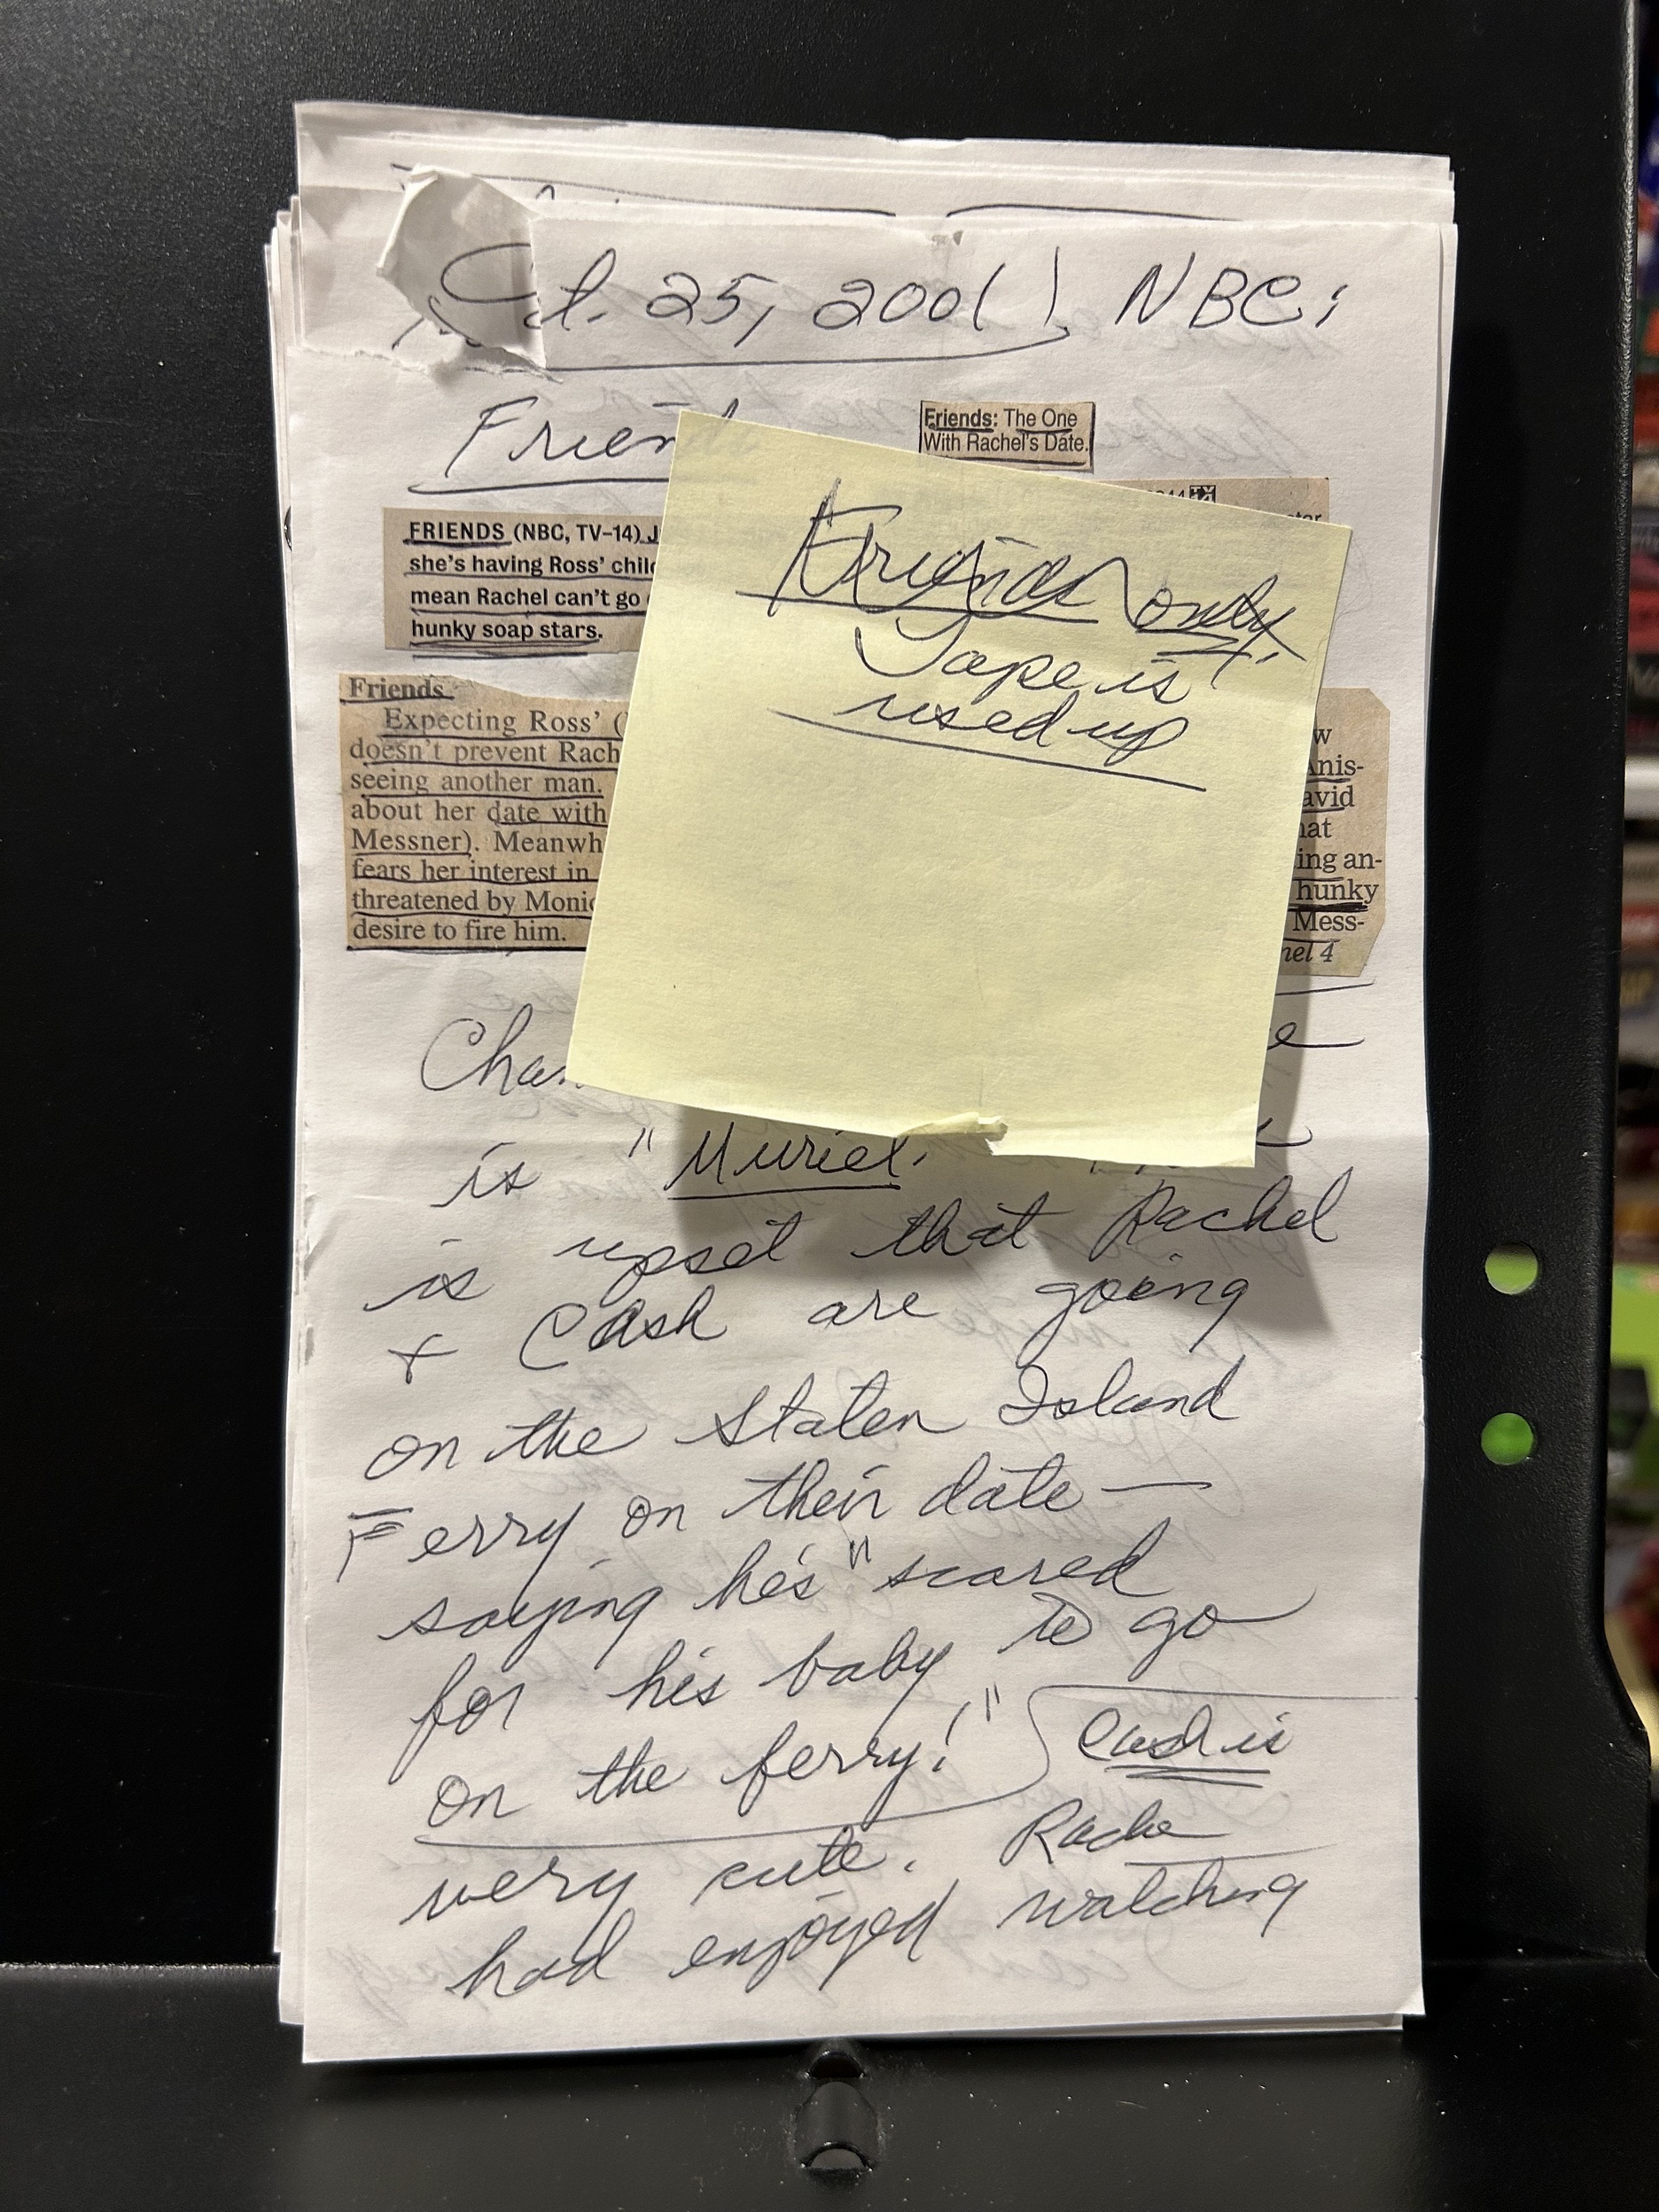 Oct. 25, 2001), NBC;
Friends
Friends: The One
With Rachel's Date.
FRIENDS (NBC, TV-14) J
she's having Ross' chil
mean Rachel can't go
hunky soap stars.
Friends only.
Tape is
used up
Friends
Expecting Ross' (
doesn't prevent Rach
seeing another man.
about her date with
Messner). Meanwh
fears her interest in
threatened by Monic
desire to fire him.
w
Anis-
avid
hat
ing an-
hunky
Mess-
nel 4
Chan
is "Muriel.
is upset that Rachel
+ Cash are going
on the Staten Island
Ferry on their date —
saying he's "scared
for his baby to go
on the ferry!" Cash is
very cute. Rache
had enjoyed watching